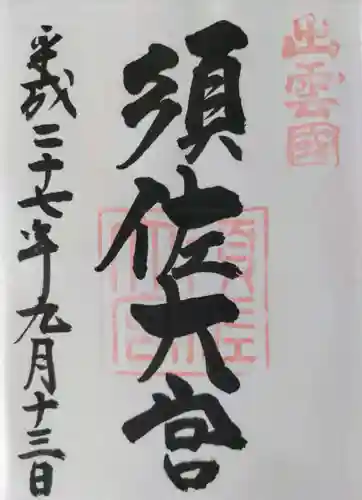 出雲國
須佐大宮
平成二十七年九月十三日
須佐大宮